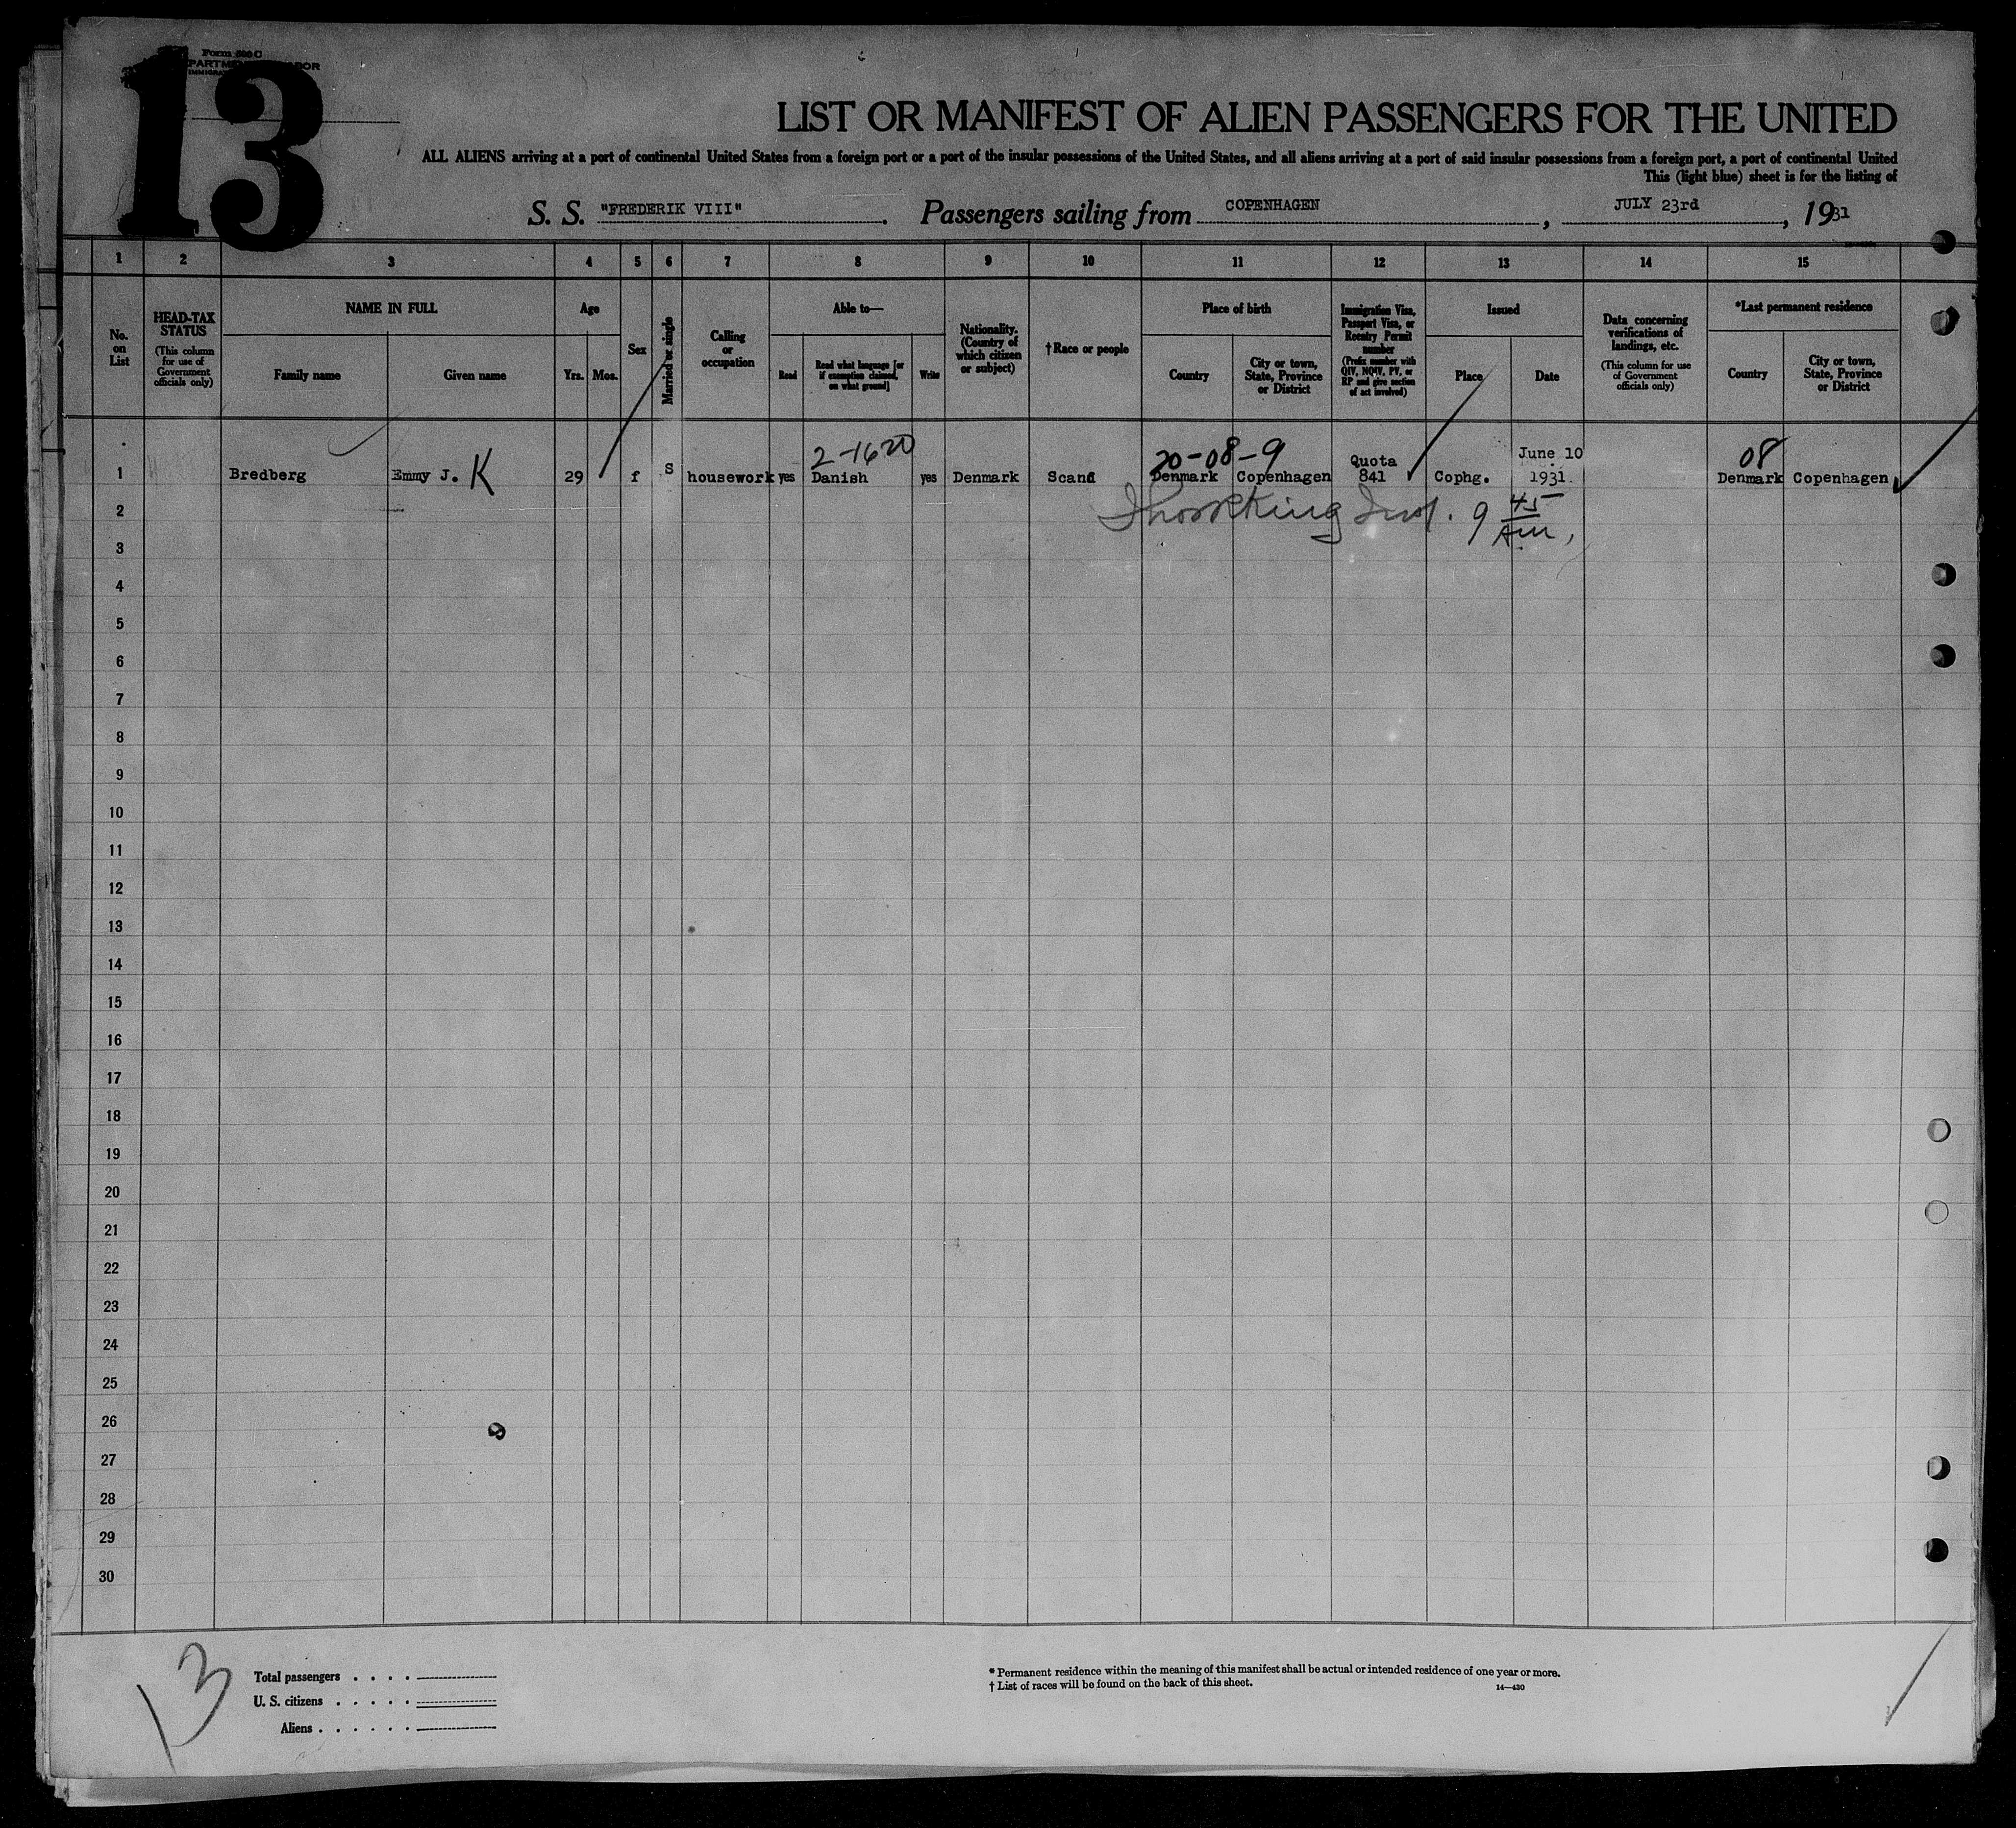 13
Form 500 C
LIST OR MANIFEST OF ALIEN PASSENGERS FOR THE UNITED
ALL ALIENS arriving at a port of continental United States from a foreign port or a port of the insular possessions of the United States, and all aliens arriving at a port of said insular possessions from a foreign port, a port of continental United
This (light blue) sheet is for the listing of
S. S. "FREDERIK VIII". Passengers sailing from COPENHAGEN, JULY 23rd, 1931
1 2 3 4 5 6 7 8 9 10 11 12 13 14 15
No. on List
HEAD-TAX STATUS
(This column for use of Government officials only)
NAME IN FULL
Family name
Given name
Age
Yrs.
Mos.
Sex
Married or single
Calling or occupation
Able to—
Read
Read what language [or if exemption claimed, on what ground]
Write
Nationality. (Country of which citizen or subject)
†Race or people
Place of birth
Country
City or town, State, Province or District
Immigration Visa, Passport Visa, or Reentry Permit number
(Prefix number with QIV, NQIV, PV, or RP and give section of act involved)
Issued
Place
Date
Data concerning verifications of landings, etc.
(This column for use of Government officials only)
*Last permanent residence
Country
City or town, State, Province or District
2-1620
20-08-9
08
1 Bredberg Emmy J. K 29 f S housework yes Danish yes Denmark Scand Denmark Copenhagen Quota 841 Cophg. June 10 1931. Denmark Copenhagen
2
9 45 Am,
3
4
5
6
7
8
9
10
11
12
13
14
15
16
17
18
19
20
21
22
23
24
25
26
27
28
29
30
13
Total passengers . . . .
U. S. citizens . . . . .
Aliens . . . . . .
* Permanent residence within the meaning of this manifest shall be actual or intended residence of one year or more.
† List of races will be found on the back of this sheet.
14—430